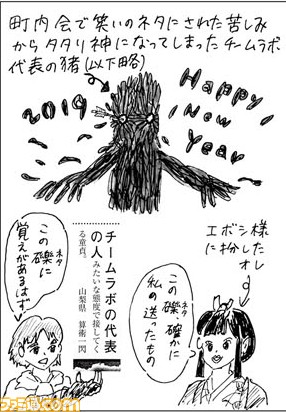 町内会で笑いのネタにされた苦しみ
からタタリ神になってしまったチームラボ
代表の猪(以下略)
2019
Happy
New
Year
エボシ様
に扮した
オレ
この礫(ネタ)確かに
私の送ったもの
チームラボの代表
の人みたいな態度で接してく
る童貞。
山梨県 算術一閃
この礫(ネタ)に
覚えがあるはず
ファミ通.com